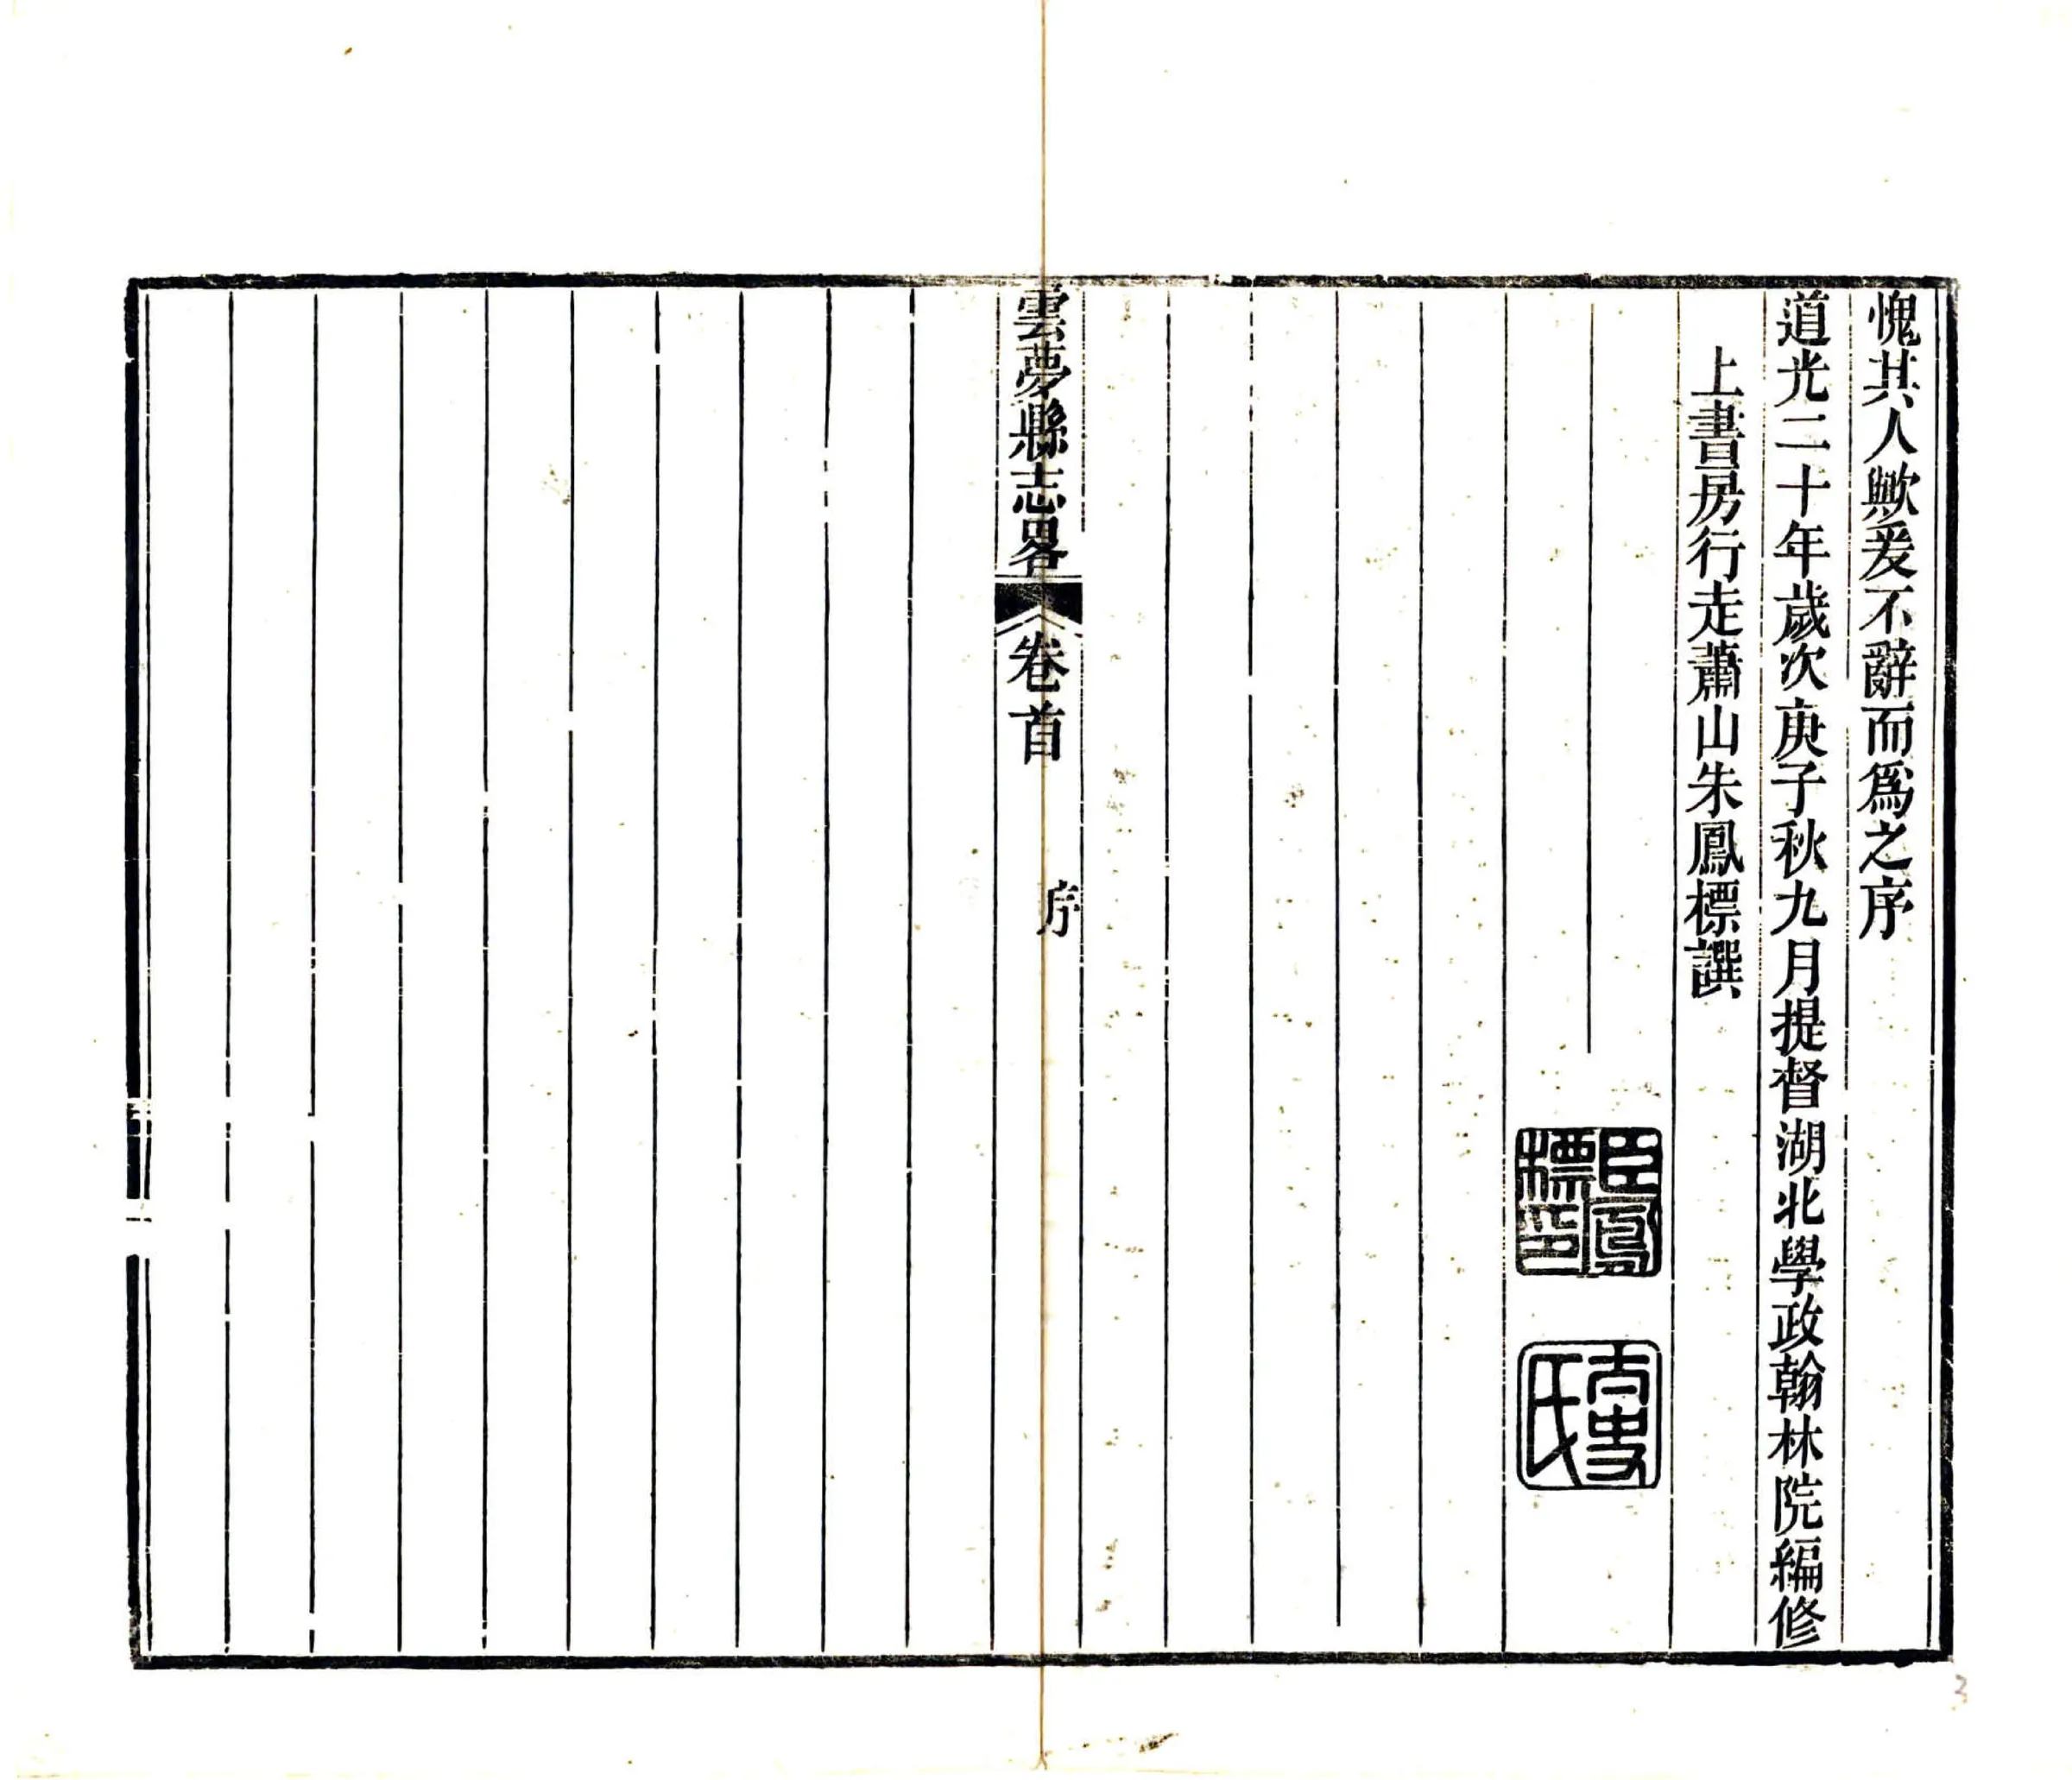 愧其人歟爰不辭而爲之序
道光二十年歲次庚子秋九月提督湖北學政翰林院編修
上書房行走蕭山朱鳳標譔
臣鳳標印
太史氏
雲夢縣志畧 卷首 序